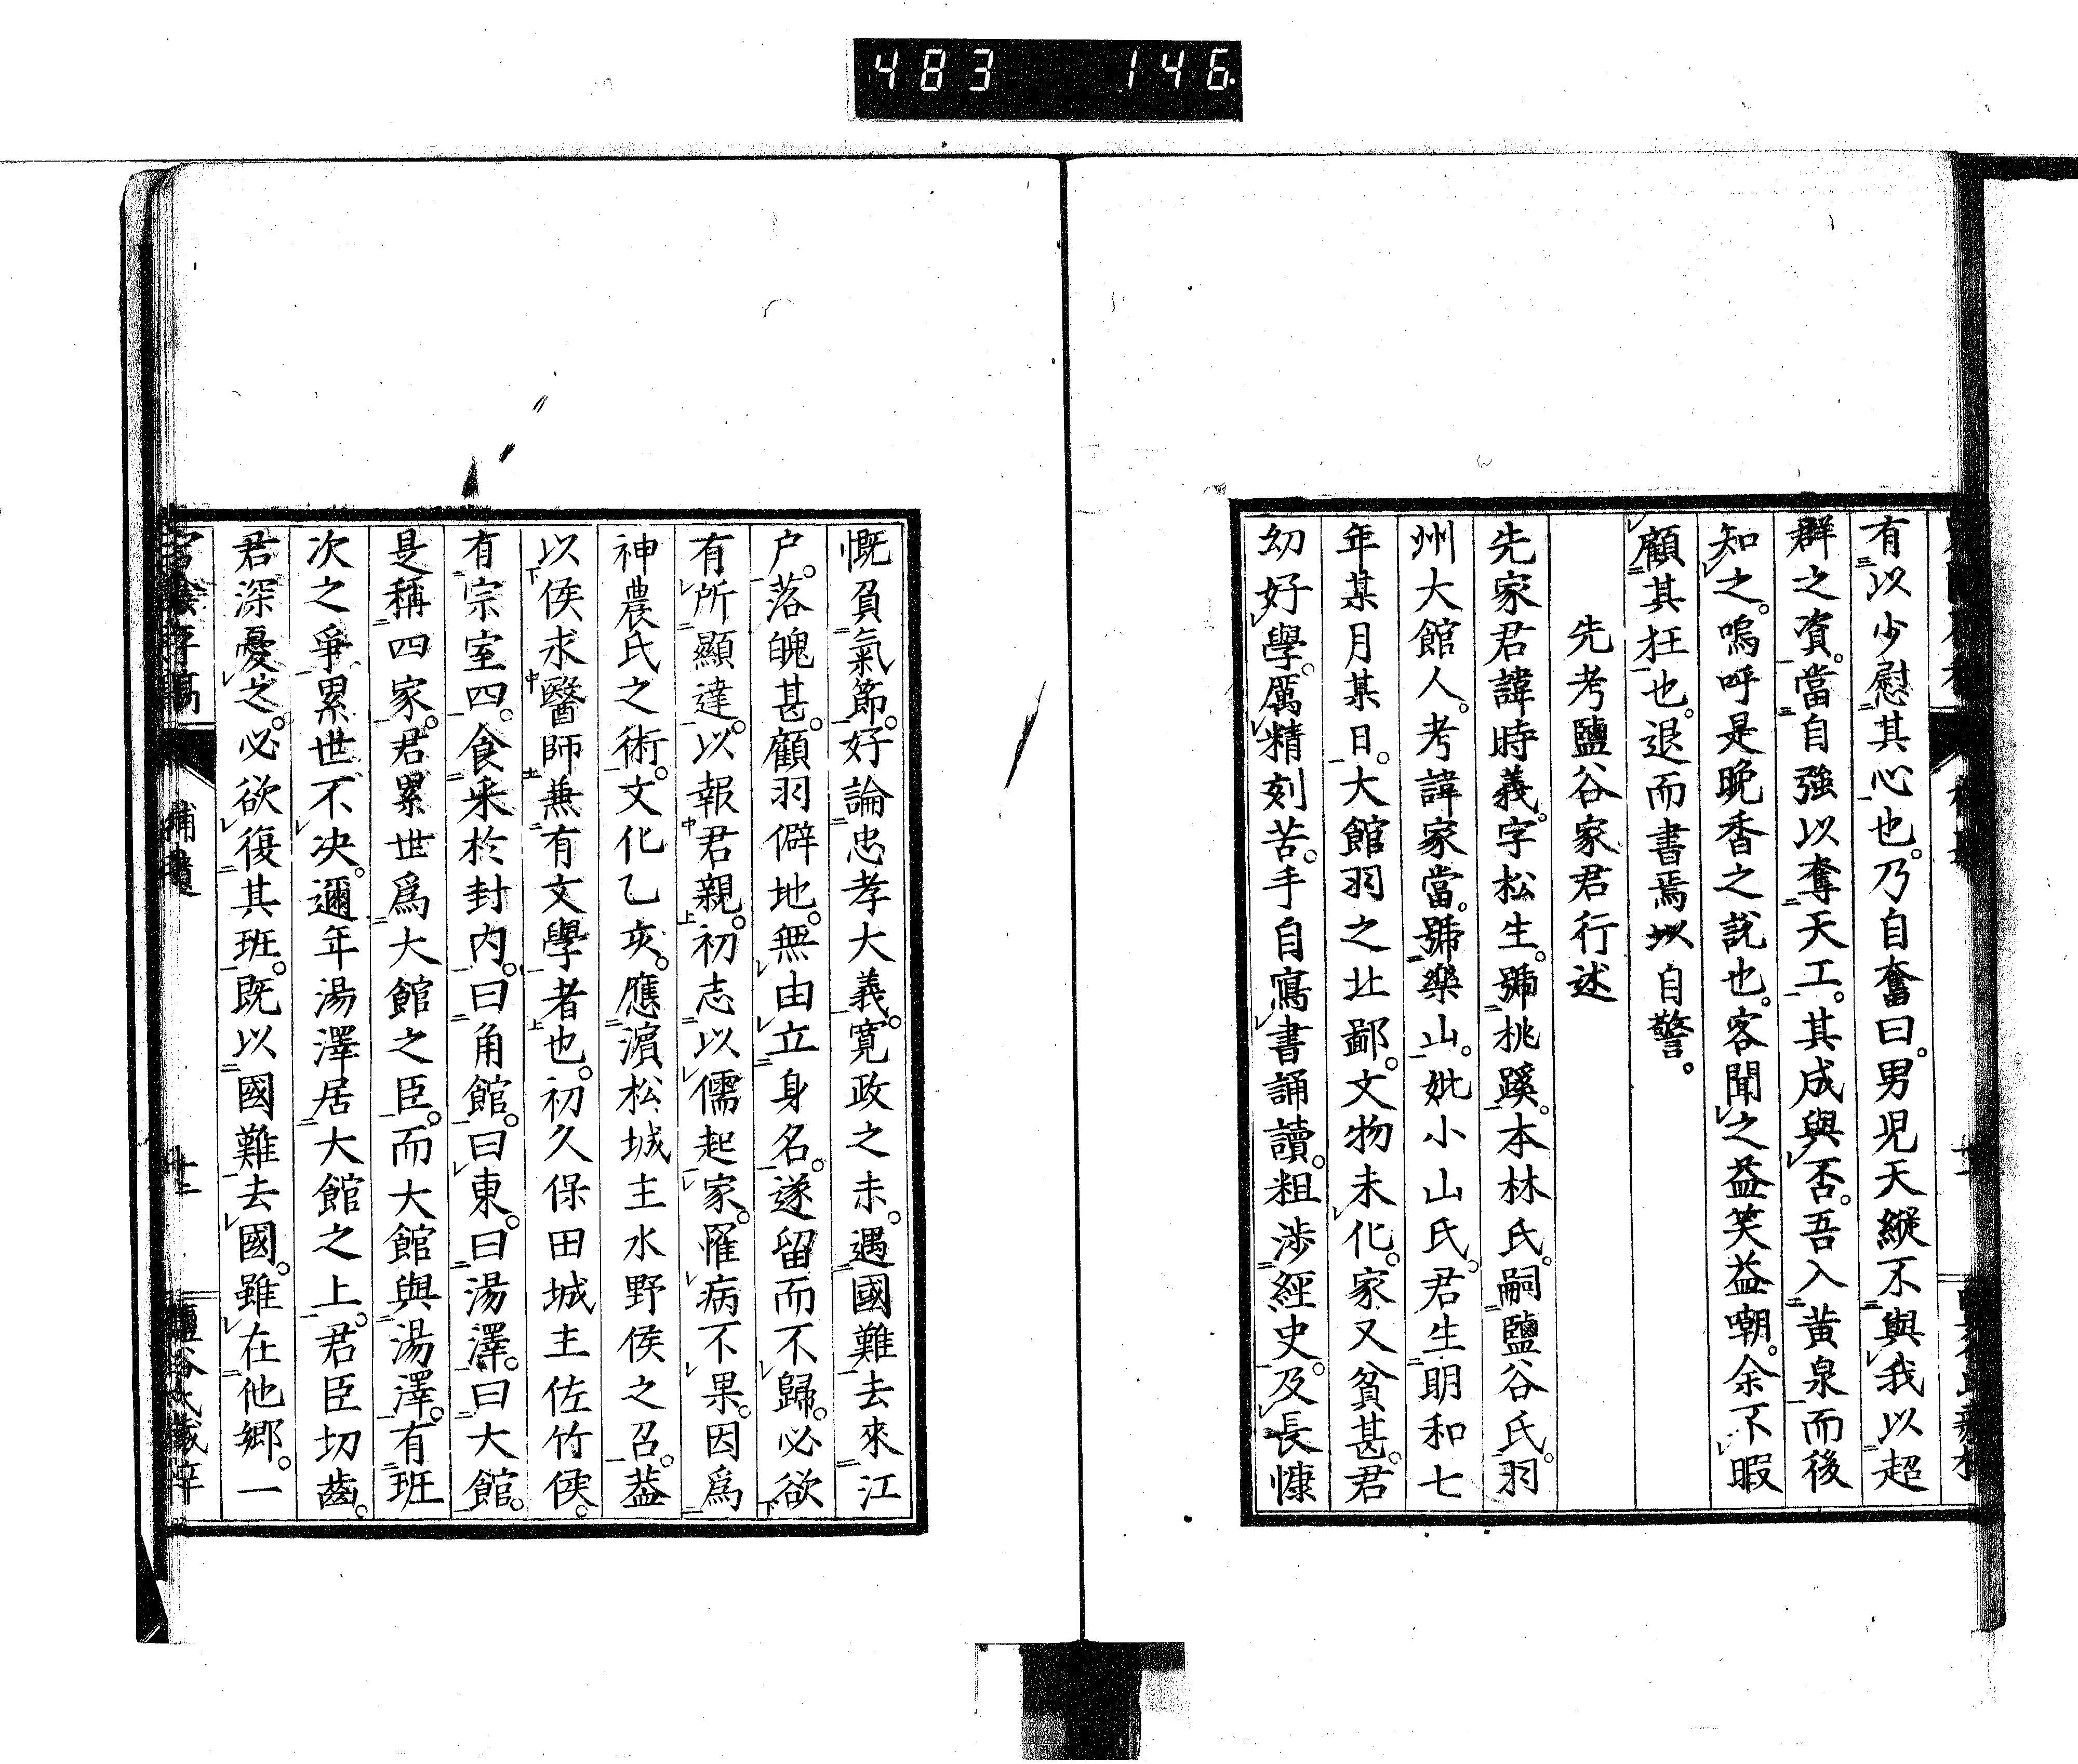 483 146
有以少慰其心也。乃自奮曰。男児天縱不與我以超
群之資。當自強以奪天工。其成與否。吾入黄泉而後
知之。嗚呼是晩香之說也。客聞之益笑益嘲。余不暇
顧其狂也。退而書焉以自警。
先考鹽谷家君行述
先家君諱時義。字松生。號桃蹊。本林氏。嗣鹽谷氏。羽
州大館人。考諱家當。號樂山。妣小山氏。君生明和七
年某月某日。大館羽之北鄙。文物未化。家又貧甚。君
幼好學。厲精刻苦。手自寫書誦讀。粗渉經史。及長慷
慨負氣節。好論忠孝大義。寛政之未。遇國難去來江
户。落魄甚。顧羽僻地。無由立身名。遂留而不歸。必欲
有所顯達。以報君親。初志以儒起家。罹病不果。因爲
神農氏之術。文化乙亥。應濵松城主水野侯之召。葢
以侯求醫師兼有文學者也。初久保田城主佐竹侯。
有宗室四。食釆於封内。曰角館。曰東。曰湯澤。曰大館。
是稱四家。君累世爲大館之臣。而大館與湯澤。有班
次之爭。累世不决。邇年湯澤居大館之上。君臣切齒。
君深憂之。必欲復其班。既以國難去國。雖在他郷。一
補遺